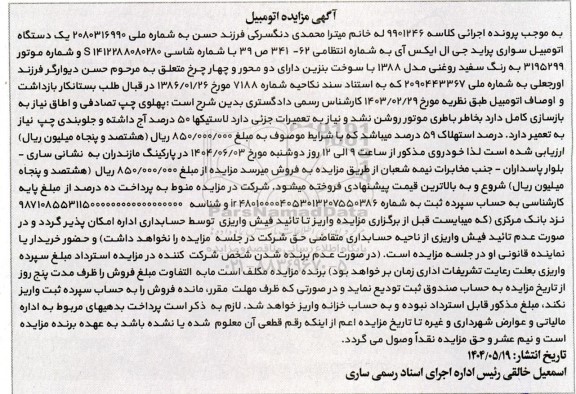 آگهی مزایده اتومبیل
به موجب پرونده اجرائی کلاسه ۹۹۰۱۲۴۶ له خانم میترا محمدی دنگسرکی فرزند حسن به شماره ملی ۲۰۸۰۳۱۶۹۹۰ یک دستگاه
اتومبیل سواری پراید جی ال ایکس آی به شماره انتظامی ۶۲- ۳۴۱ ص ۳۹ با شماره شاسی S ۱۴۱۲۲۸۸۰۸۰۲۸۰ و شماره موتور
۳۱۹۵۲۹۹ به رنگ سفید روغنی مدل ۱۳۸۸ با سوخت بنزین دارای دو محور و چهار چرخ متعلق به مرحوم حسن دیوارگر فرزند
اورجعلی به شماره ملی ۲۰۹۰۴۴۳۳۶۷ که به استناد سند نکاحیه شماره ۷۱۸۸ مورخ ۱۳۸۶/۰۱/۲۶ در قبال طلب بستانکار بازداشت
و اوصاف اتومبیل طبق نظریه مورخ ۱۴۰۳/۰۲/۲۹ کارشناس رسمی دادگستری بدین شرح است :پهلوی چپ تصادفی و اطاق نیاز به
بازسازی کامل دارد بخاطر باطری موتور روشن نشد و نیاز به تعمیرات جزئی دارد لاستیکها ۵۰ درصد آج داشته و جلوبندی چپ نیاز
به تعمیر دارد. درصد استهلاک ۵۹ درصد میباشد که با شرایط موصوف به مبلغ ۸۵۰/۰۰۰/۰۰۰ ریال (هشتصد و پنجاه میلیون ریال)
ارزیابی شده است لذا خودروی مذکور از ساعت ۹ الی ۱۲ روز دوشنبه مورخ ۱۴۰۴/۰۶/۰۳ در پارکینگ مازندران به نشانی ساری -
بلوار پاسداران - جنب مخابرات نیمه شعبان از طریق مزایده به فروش میرسد مزایده از مبلغ ۸۵۰/۰۰۰/۰۰۰ ریال (هشتصد و پنجاه
میلیون ریال) شروع و به بالاترین قیمت پیشنهادی فروخته میشود. شرکت در مزایده منوط به پرداخت ده درصد از مبلغ پایه
کارشناسی به حساب سپرده ثبت به شماره
نزد بانک مرکزی (که میبایست قبل از برگزاری مزایده واریز تا تائید فیش واریزی توسط حسابداری اداره امکان پذیر گردد و در
صورت عدم تائید فیش واریزی از ناحیه حسابداری متقاضی حق شرکت در جلسه مزایده را نخواهد داشت) و حضور خریدار یا
نماینده قانونی او در جلسه مزایده است. (در صورت عدم برنده شدن شخص شرکت کننده در مزایده استرداد مبلغ سپرده
واریزی بعلت رعایت تشریفات اداری زمان بر خواهد بود) برنده مزایده مکلف است مابه التفاوت مبلغ فروش را ظرف مدت پنج روز
از تاریخ مزایده به حساب صندوق ثبت تودیع نماید و در صورتی که ظرف مهلت مقرر مانده فروش را به حساب سپرده ثبت واریز
نکند، مبلغ مذکور قابل استرداد نبوده و به حساب خزانه واریز خواهد شد. لازم به ذکر است پرداخت بدهیهای مربوط به اداره
مالیاتی و عوارض شهرداری و غیره تا تاریخ مزایده اعم از اینکه رقم قطعی آن معلوم شده یا نشده باشد به عهده برنده مزایده
است و نیم عشر و حق مزایده نقداً وصول می گردد.
تاریخ انتشار: ۱۴۰۴/۰۵/۱۹
اسمعیل خالقی رئیس اداره اجرای اسناد رسمی ساری